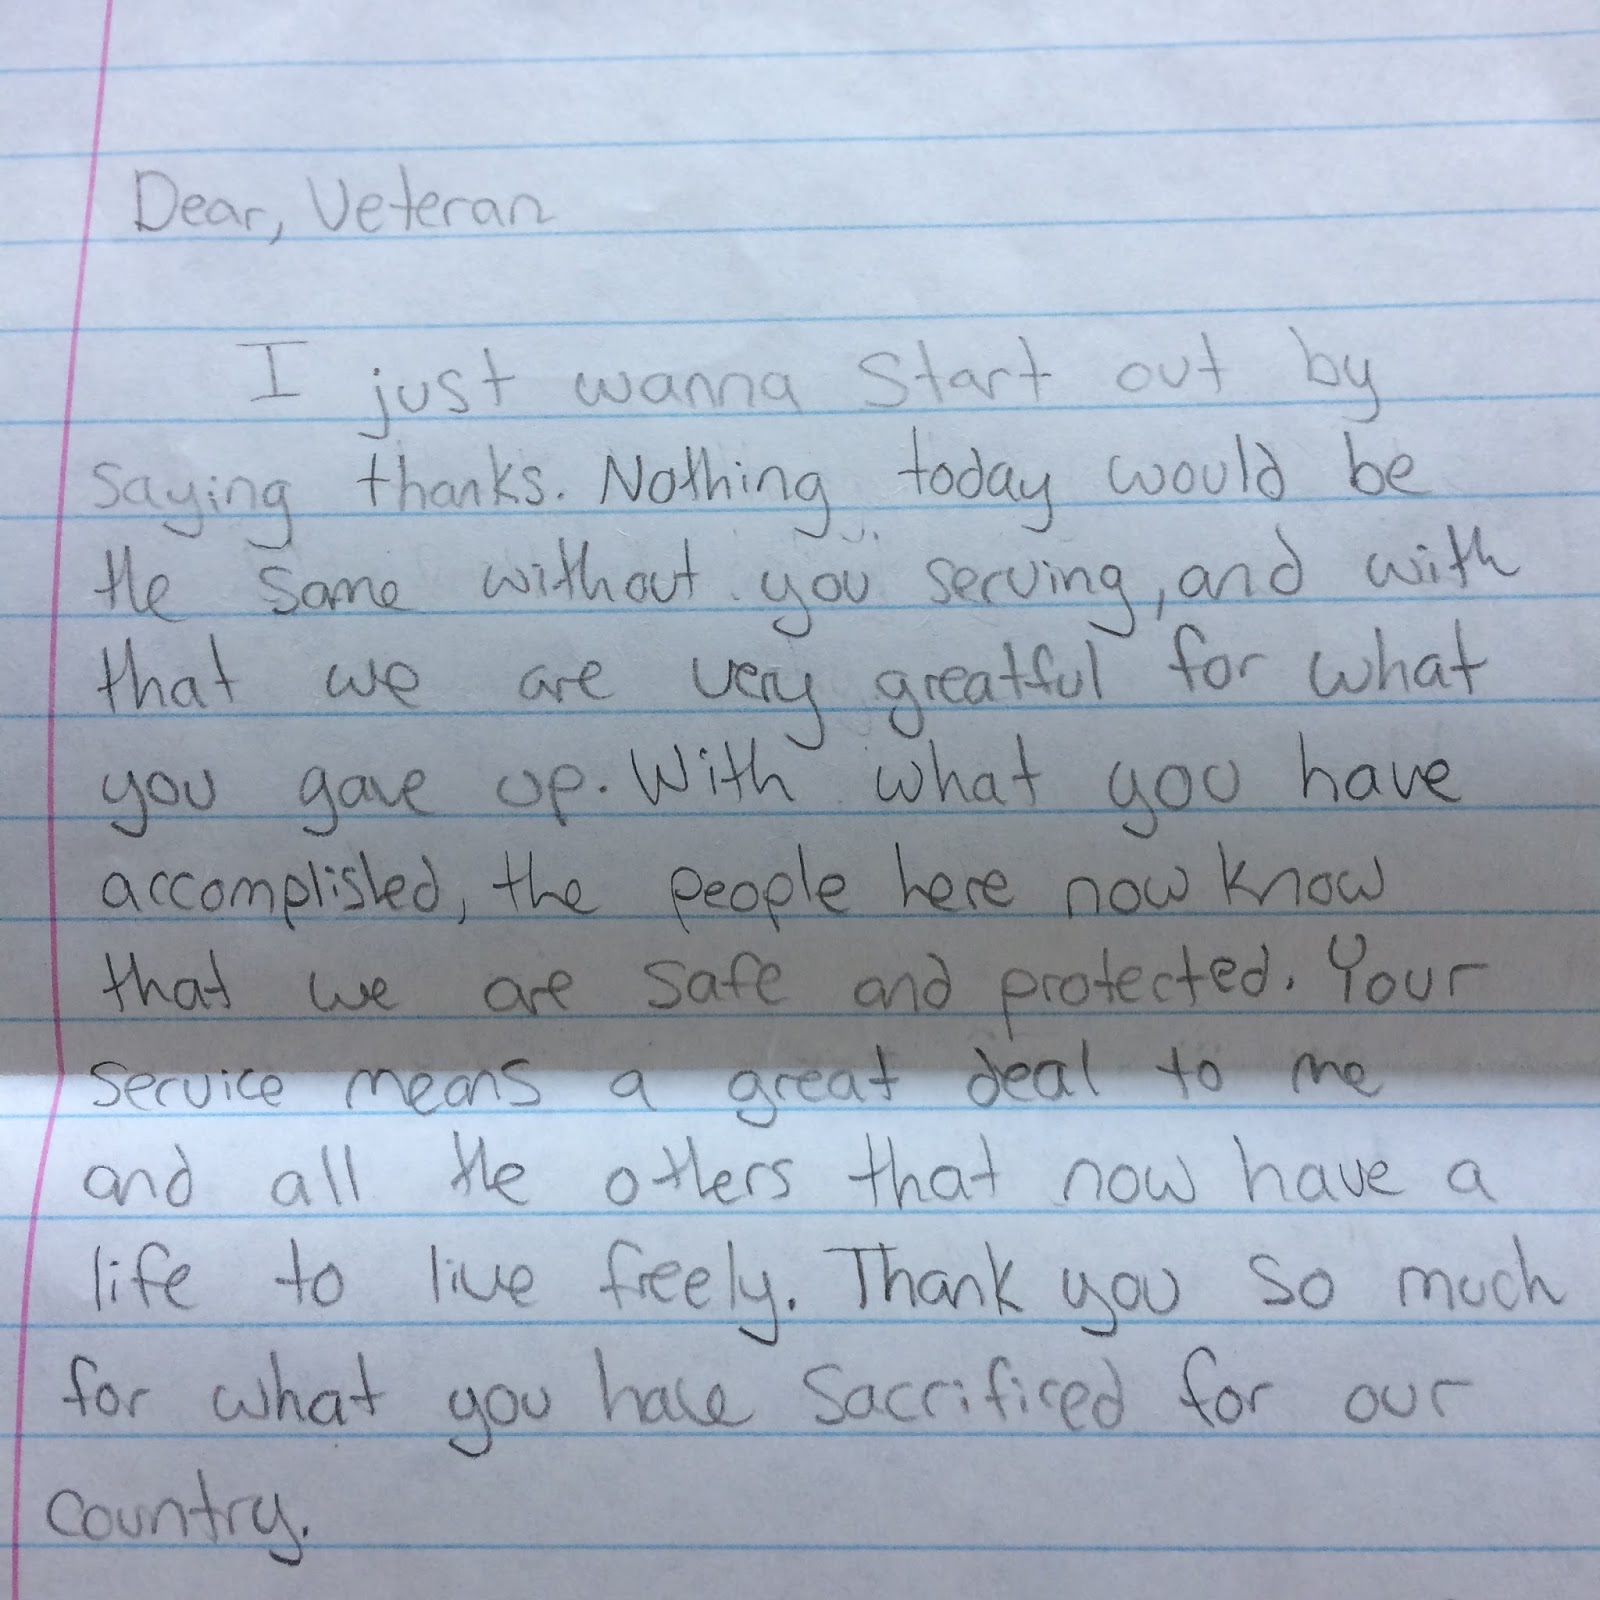 Dear, Veteran
I just wanna Start out by
saying thanks. Nothing today would be
the same without you serving, and with
that we are very greatful for what
you gave up. With what you have
accomplished, the people here now know
that we are safe and protected. Your
service means a great deal to me
and all the others that now have a
life to live freely. Thank you so much
for what you have sacrificed for our
country.